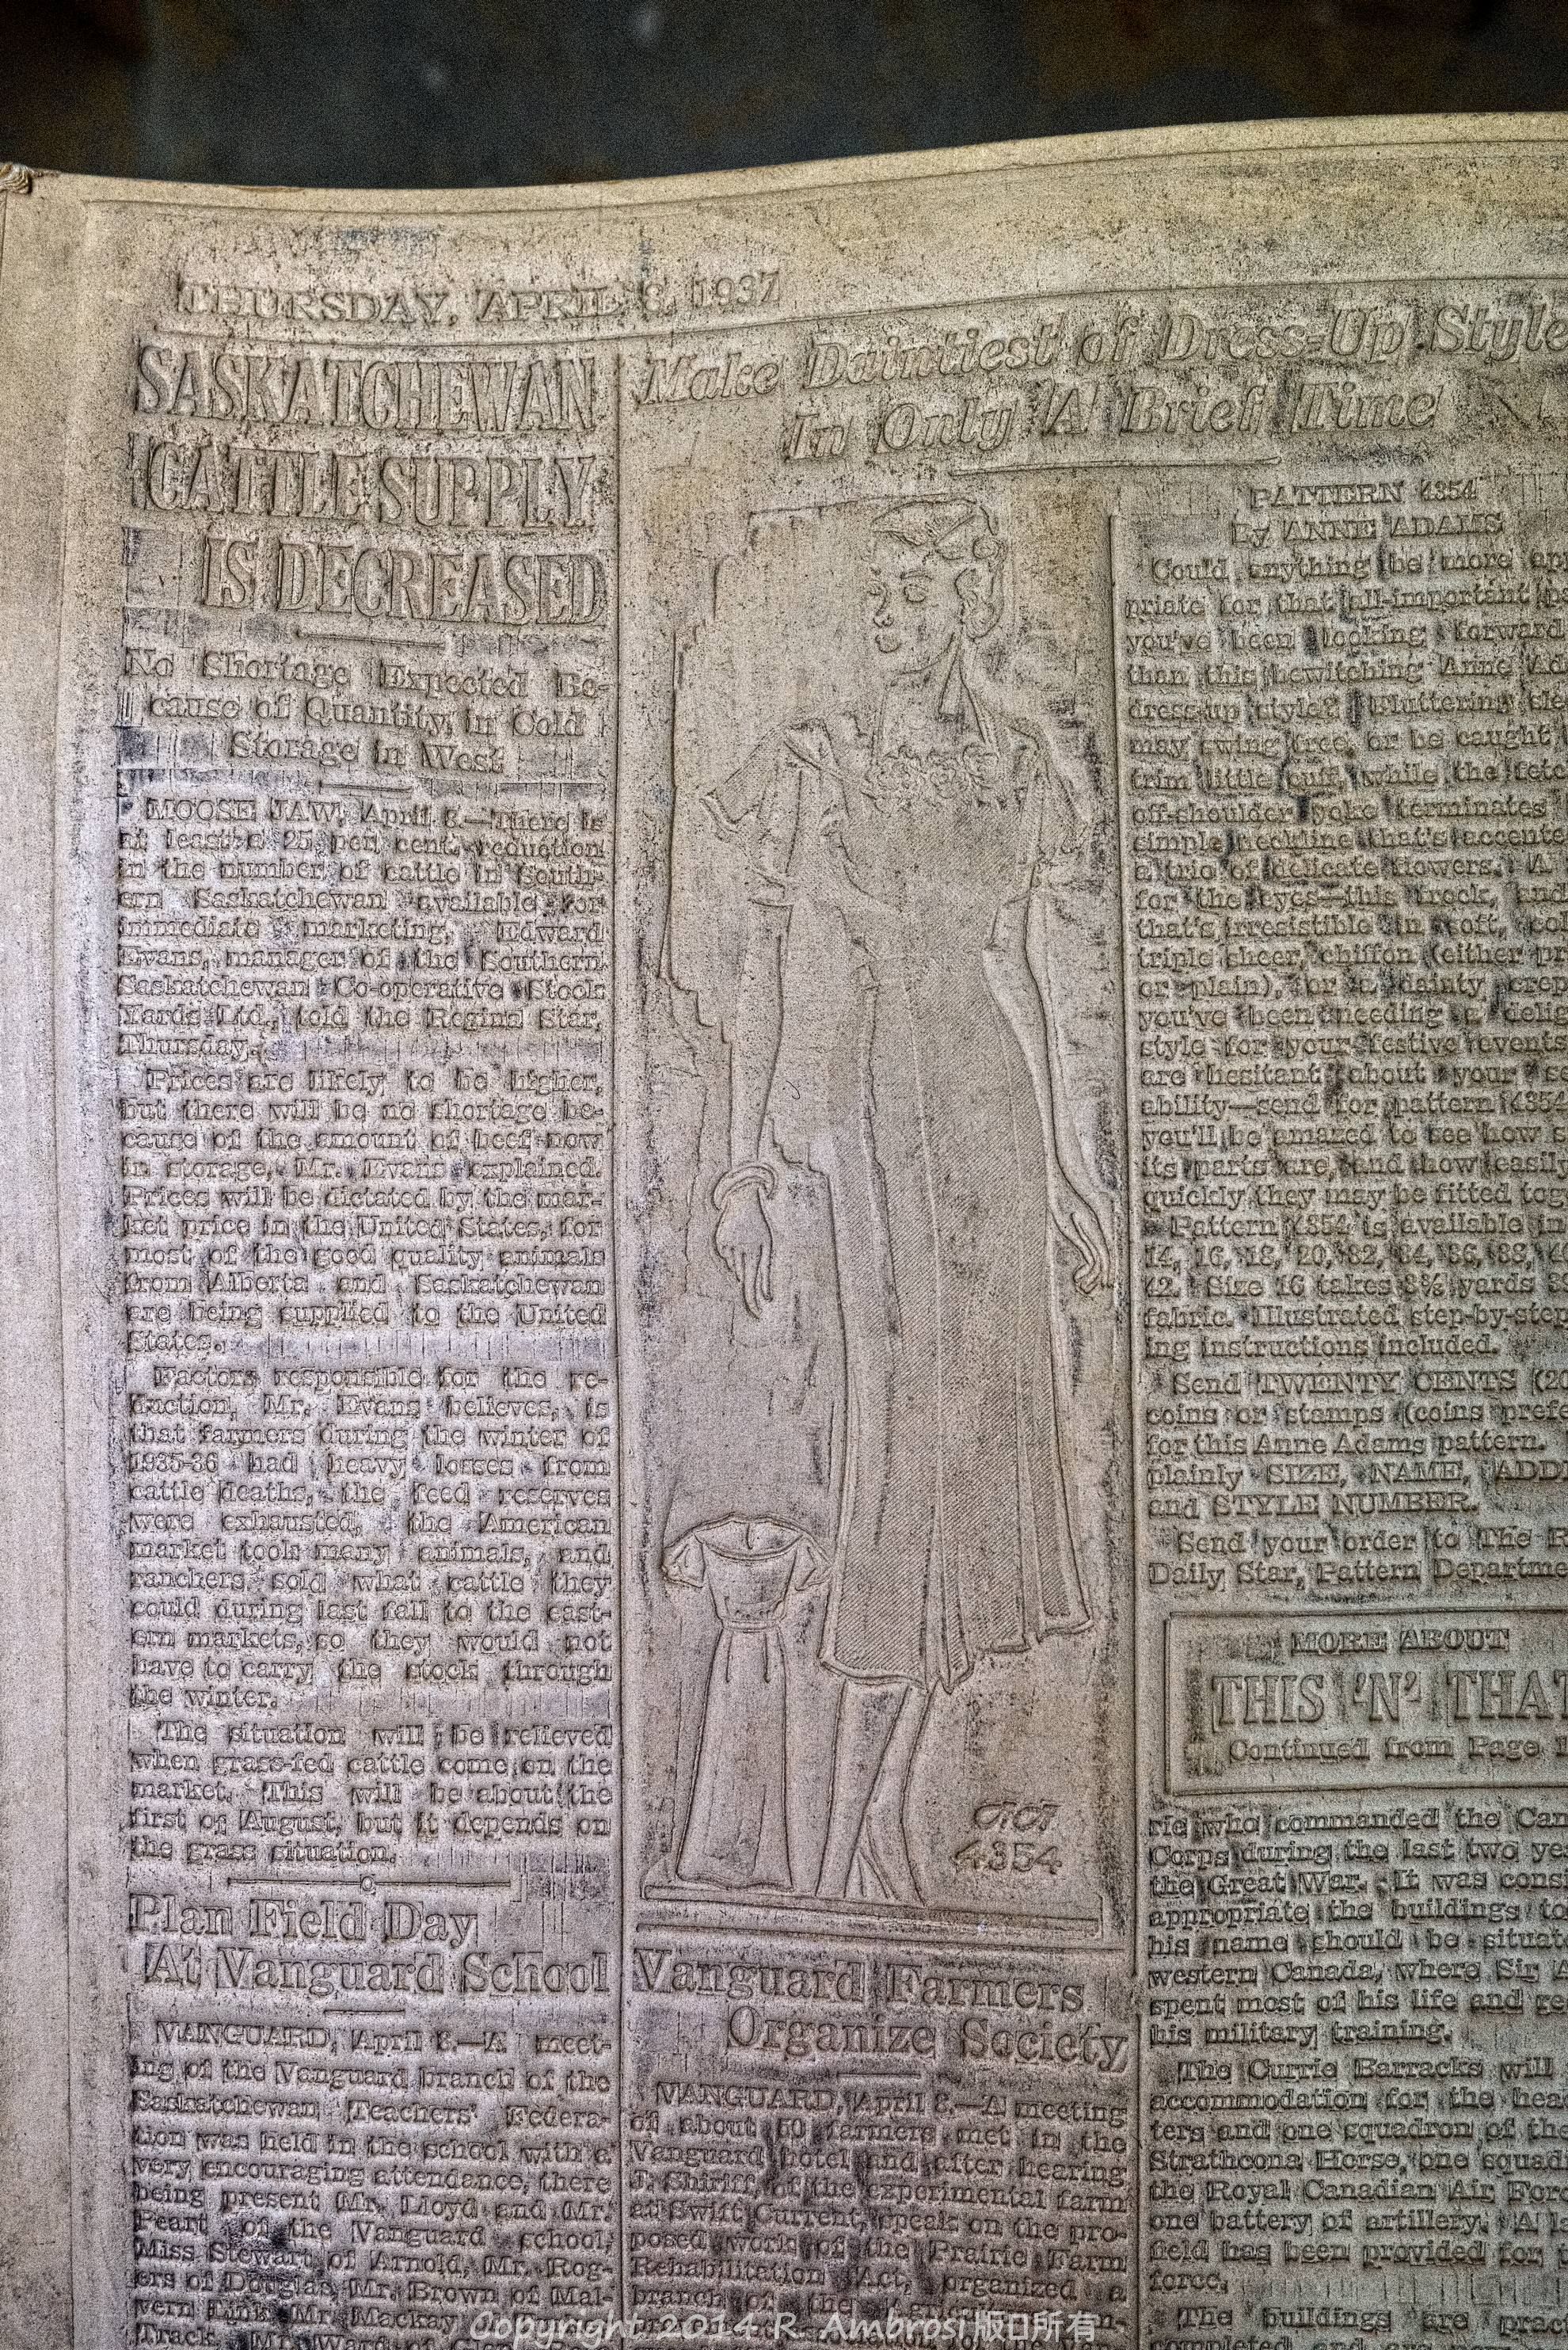 THURSDAY, APRIL 8, 1937
SASKATCHEWAN
CATTLE SUPPLY
IS DECREASED
No Shortage Expected Be-
cause of Quantity in Cold
Storage in West
MOOSE JAW, April 8.—There is
at least a 25 per cent. reduction
in the number of cattle in South-
ern Saskatchewan available for
immediate marketing, Edward
Evans, manager of the Southern
Saskatchewan Co-operative Stock
Yards Ltd., told the Regina Star,
Thursday.
Prices are likely to be higher,
but there will be no shortage be-
cause of the amount of beef now
in storage, Mr. Evans explained.
Prices will be dictated by the mar-
ket price in the United States, for
most of the good quality animals
from Alberta and Saskatchewan
are being supplied to the United
States.
Factors responsible for the re-
duction, Mr. Evans believes, is
that farmers during the winter of
1935-36 had heavy losses from
cattle deaths, the feed reserves
were exhausted, the American
market took many animals, and
ranchers sold what cattle they
could during last fall to the east-
ern markets, so they would not
have to carry the stock through
the winter.
The situation will be relieved
when grass-fed cattle come on the
market. This will be about the
first of August, but it depends on
the grass situation.
Plan Field Day
At Vanguard School
VANGUARD, April 8.—A meet-
ing of the Vanguard branch of the
Saskatchewan Teachers' Federa-
tion was held in the school with a
very encouraging attendance, there
being present Mr. Lloyd and Mr.
Peart of the Vanguard school,
Miss Stewart of Arnold, Mr. Rog-
ers of Douglas, Mr. Brown of Mal-
vern Link, Mr. Mackay
Track, Mr. Ward of
Make Daintiest of Dress-Up Style
In Only A Brief Time
4354
Vanguard Farmers
Organize Society
VANGUARD, April 8.—A meeting
of about 50 farmers met in the
Vanguard hotel and after hearing
J. Shiriff, of the experimental farm
at Swift Current, speak on the pro-
posed work of the Prairie Farm
Rehabilitation Act, organized a
branch of the
PATTERN 4354
By ANNE ADAMS
Could anything be more app
priate for that all-important p
you've been looking forward
than this bewitching Anne Ad
dress-up style? Fluttering sle
may swing free, or be caught
trim little cuff, while the fetc
off-shoulder yoke terminates
simple neckline that's accente
a trio of delicate flowers. A
for the eyes—this frock, and
that's irresistible in soft, co
triple sheer, chiffon (either pr
or plain), or a dainty crep
you've been needing a delig
style for your festive events
are hesitant about your se
ability—send for pattern 4354
you'll be amazed to see how s
its parts are, and how easily
quickly they may be fitted tog
Pattern 4354 is available in
14, 16, 18, 20, 32, 34, 36, 38, 4
42. Size 16 takes 3⅜ yards 3
fabric. Illustrated step-by-step
ing instructions included.
Send TWENTY CENTS (20
coins or stamps (coins prefe
for this Anne Adams pattern.
plainly SIZE, NAME, ADD
and STYLE NUMBER.
Send your order to The R
Daily Star, Pattern Departme
MORE ABOUT
THIS 'N' THAT
Continued from Page 1
rie who commanded the Can
Corps during the last two ye
the Great War. It was cons
appropriate the buildings to
his name should be situat
western Canada, where Sir A
spent most of his life and ge
his military training.
The Currie Barracks will
accommodation for the hea
ters and one squadron of th
Strathcona Horse, one squad
the Royal Canadian Air For
one battery of artillery. A l
field has been provided for
force.
The buildings are prac
Copyright 2014 R. Ambrosi版日所有